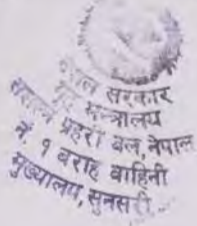 नेपाल सरकार
गृह मन्त्रालय
सशस्त्र प्रहरी बल, नेपाल
नं. १ बराह वाहिनी
मुख्यालय, सुनसरी